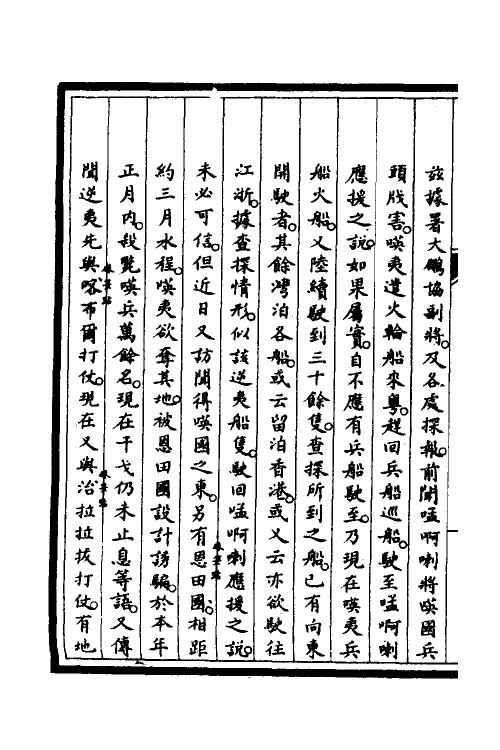 茲據署大鵬協副將。及各處探報。前聞嗌啊喇將㗸國兵
頭戕害。㗸夷遣火輪船來粵。趕回兵船巡船。駛至嗌啊喇
應援之說。如果屬實。自不應有兵船駛至。乃現在㗸夷兵
船火船。又陸續駛到三十餘隻。查探所到之船。已有向東
開駛者。其餘灣泊各船。或云留泊香港。或又云亦欲駛往
江浙。據查探情形。似該逆夷船隻。駛回嗌啊喇應援之說。
未必可信。但近日又訪聞得㗸國之東。另有恩田國。相距
約三月水程。㗸夷欲奪其地。被恩田國設計誘騙。於本年
正月內。殺斃㗸兵萬餘名。現在干戈仍未止息等語。又傳
聞逆夷先與喀布爾打仗。現在又與治拉拉拔打仗。有地